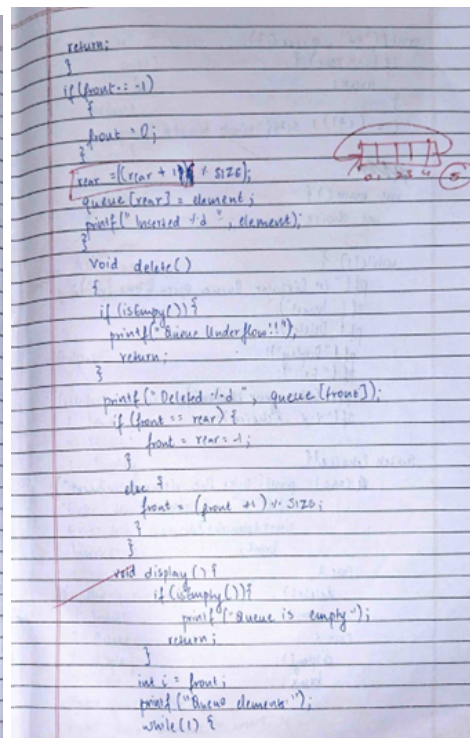 return;
}
if (front == -1)
{
front = 0;
}
rear = ((rear + 1) % SIZE);
queue [rear] = element;
printf(" Inserted %d ", element);
}
void delete()
{
if (isEmpy()) {
printf("Queue Underflow!!");
return;
}
printf(" Deleted %d ", queue [front]);
if (front == rear) {
front = rear = -1;
}
else {
front = (front +1) % SIZE;
}
}
void display() {
if (isEmpty()) {
printf("Queue is empty");
return;
}
int i = front;
printf("Queue elements");
while(1) {
0 1 2 3 4 5